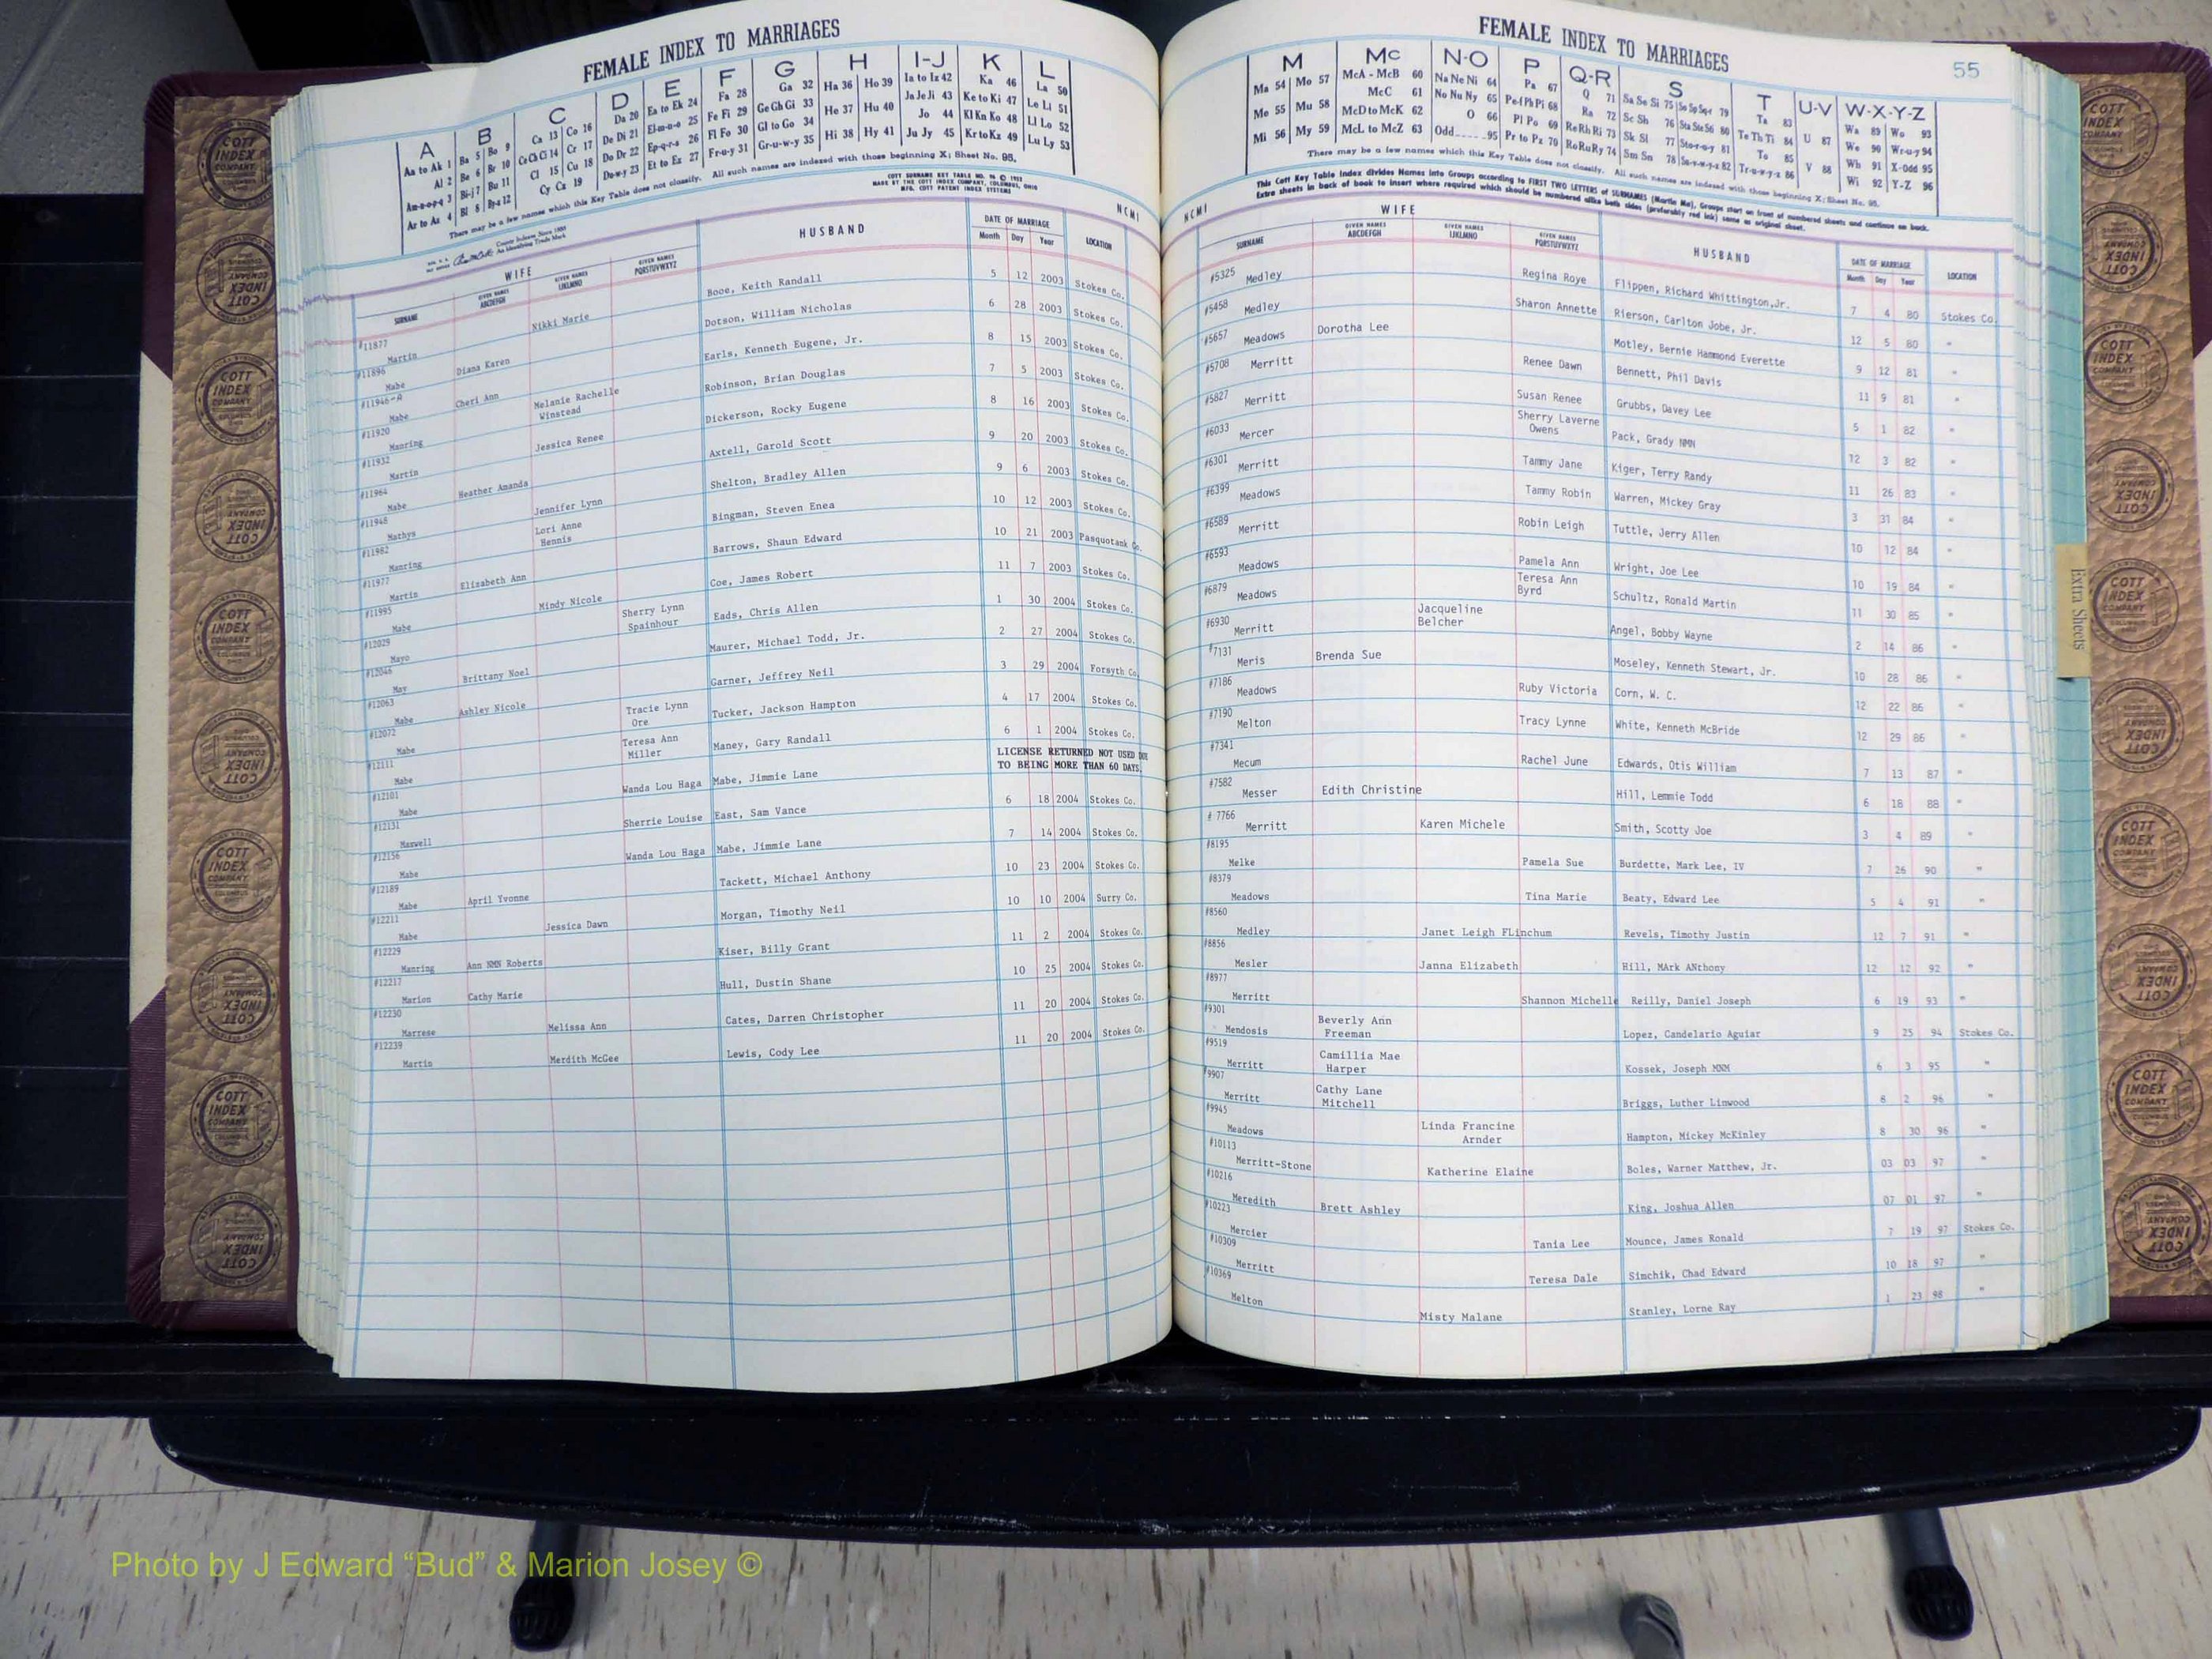 FEMALE INDEX TO MARRIAGES
A B C D E F G H I-J K L
Aa to Ak 1 Ba 5 Bo 9 Ca 13 Co 16 Da 20 Ea to Ek 24 Fa 28 Ga 32 Ha 36 Ho 39 Ia to Iz 42 Ka 46 La 50
Al 2 Be 6 Br 10 Ce Ch Ci 14 Cr 17 De Di 21 El-m-n-o 25 Fe Fi 29 Ge Gh Gi 33 He 37 Hu 40 Ja Je Ji 43 Ke to Ki 47 Le Li 51
Am-n-o-p-q 3 Bi-j 7 Bu 11 Cl 15 Cu 18 Do Dr 22 Ep-q-r-s 26 Fl Fo 30 Gl to Go 34 Hi 38 Hy 41 Jo 44 Kl Kn Ko 48 Ll Lo 52
Ar to Az 4 Bl 8 By-z 12 Cy Cz 19 Du-w-y 23 Et to Ez 27 Fr-u-y 31 Gr-u-w-y 35 Ju Jy 45 Kr to Kz 49 Lu Ly 53
There may be a few names which this Key Table does not classify. All such names are indexed with those beginning X; Sheet No. 95.
COTT SURNAME KEY TABLE
MADE BY THE COTT INDEX COMPANY, COLUMBUS, OHIO
NCMI
WIFE HUSBAND DATE OF MARRIAGE LOCATION
SURNAME GIVEN NAMES ABCDEFGH GIVEN NAMES IJKLMNO GIVEN NAMES PQRSTUVWXYZ Month Day Year
#11877 Martin Nikki Marie Booe, Keith Randall 5 12 2003 Stokes Co.
#11896 Mabe Diana Karen Dotson, William Nicholas 6 28 2003 Stokes Co.
#11946-A Mabe Cheri Ann Earls, Kenneth Eugene, Jr. 8 15 2003 Stokes Co.
#11920 Manring Melanie Rachelle Winstead Robinson, Brian Douglas 7 5 2003 Stokes Co.
#11932 Martin Jessica Renee Dickerson, Rocky Eugene 8 16 2003 Stokes Co.
#11964 Mabe Heather Amanda Axtell, Garold Scott 9 20 2003 Stokes Co.
#11948 Mathys Jennifer Lynn Shelton, Bradley Allen 9 6 2003 Stokes Co.
#11982 Manring Lori Anne Hennis Bingman, Steven Enea 10 12 2003 Stokes Co.
#11977 Martin Elizabeth Ann Barrows, Shaun Edward 10 21 2003 Pasquotank Co.
#11995 Mabe Mindy Nicole Coe, James Robert 11 7 2003 Stokes Co.
#12029 Mayo Sherry Lynn Spainhour Eads, Chris Allen 1 30 2004 Stokes Co.
#12046 May Brittany Noel Maurer, Michael Todd, Jr. 2 27 2004 Stokes Co.
#12063 Mabe Ashley Nicole Garner, Jeffrey Neil 3 29 2004 Forsyth Co.
#12072 Mabe Tracie Lynn Ore Tucker, Jackson Hampton 4 17 2004 Stokes Co.
#12111 Mabe Teresa Ann Miller Maney, Gary Randall 6 1 2004 Stokes Co.
#12101 Mabe Wanda Lou Haga Mabe, Jimmie Lane LICENSE RETURNED NOT USED DUE
TO BEING MORE THAN 60 DAYS.
#12131 Maxwell Sherrie Louise East, Sam Vance 6 18 2004 Stokes Co.
#12156 Mabe Wanda Lou Haga Mabe, Jimmie Lane 7 14 2004 Stokes Co.
#12189 Mabe April Yvonne Tackett, Michael Anthony 10 23 2004 Stokes Co.
#12211 Mabe Jessica Dawn Morgan, Timothy Neil 10 10 2004 Surry Co.
#12229 Manring Ann NMN Roberts Kiser, Billy Grant 11 2 2004 Stokes Co.
#12217 Marion Cathy Marie Hull, Dustin Shane 10 25 2004 Stokes Co.
#12230 Marrese Melissa Ann Cates, Darren Christopher 11 20 2004 Stokes Co.
#12239 Martin Merdith McGee Lewis, Cody Lee 11 20 2004 Stokes Co.
FEMALE INDEX TO MARRIAGES 55
M Mc N-O P Q-R S T U-V W-X-Y-Z
Ma 54 Mo 57 McA - McB 60 Na Ne Ni 64 Pa 67 Q 71 Sa Se Si 75 So Sp Sq-r 79 Ta 83 Wa 89 Wo 93
Me 55 Mu 58 McC 61 No Nu Ny 65 Pe-f Ph Pi 68 Ra 72 Sc Sh 76 Sta Ste 80 Te Th Ti 84 U 87 We 90 Wr-u-y 94
Mi 56 My 59 McD to McK 62 O 66 Pl Po 69 Re Rh Ri 73 Sk Sl 77 Sto-r-u-y 81 To 85 V 88 Wh 91 X-Odd 95
McL to McZ 63 Odd 95 Pr to Pz 70 Ro Ru Ry 74 Sm Sn 78 Su-v-w-y-z 82 Tr-u-w-y-z 86 Wi 92 Y-Z 96
There may be a few names which this Key Table does not classify. All such names are indexed with those beginning X; Sheet No. 95.
This Cott Key Table Index divides Names into Groups according to FIRST TWO LETTERS of SURNAMES (Martin Ma), Groups start on front of numbered sheets and continue on back.
Extra sheets in back of book to insert where required which should be numbered alike both sides (preferably red ink) same as original sheet.
NCMI
WIFE HUSBAND DATE OF MARRIAGE LOCATION
SURNAME GIVEN NAMES ABCDEFGH GIVEN NAMES IJKLMNO GIVEN NAMES PQRSTUVWXYZ Month Day Year
#5325 Medley Regina Roye Flippen, Richard Whittington,Jr. 7 4 80 Stokes Co.
#5458 Medley Sharon Annette Rierson, Carlton Jobe, Jr. 12 5 80 "
#5657 Meadows Dorotha Lee Motley, Bernie Hammond Everette 9 12 81 "
#5708 Merritt Renee Dawn Bennett, Phil Davis 11 9 81 "
#5827 Merritt Susan Renee Grubbs, Davey Lee 5 1 82 "
#6033 Mercer Sherry Laverne Owens Pack, Grady NMN 12 3 82 "
#6301 Merritt Tammy Jane Kiger, Terry Randy 11 26 83 "
#6399 Meadows Tammy Robin Warren, Mickey Gray 3 31 84 "
#6589 Merritt Robin Leigh Tuttle, Jerry Allen 10 12 84 "
#6593 Meadows Pamela Ann Wright, Joe Lee 10 19 84 "
#6879 Meadows Teresa Ann Byrd Schultz, Ronald Martin 11 30 85 "
#6930 Merritt Jacqueline Belcher Angel, Bobby Wayne 2 14 86 "
#7131 Meris Brenda Sue Moseley, Kenneth Stewart, Jr. 10 28 86 "
#7186 Meadows Ruby Victoria Corn, W. C. 12 22 86 "
#7190 Melton Tracy Lynne White, Kenneth McBride 12 29 86 "
#7341 Mecum Rachel June Edwards, Otis William 7 13 87 "
#7582 Messer Edith Christine Hill, Lemmie Todd 6 18 88 "
# 7766 Merritt Karen Michele Smith, Scotty Joe 3 4 89 "
#8195 Melke Pamela Sue Burdette, Mark Lee, IV 7 26 90 "
#8379 Meadows Tina Marie Beaty, Edward Lee 5 4 91 "
#8560 Medley Janet Leigh FLinchum Revels, Timothy Justin 12 7 91 "
#8856 Mesler Janna Elizabeth Hill, MArk ANthony 12 12 92 "
#8977 Merritt Shannon Michelle Reilly, Daniel Joseph 6 19 93 "
#9301 Mendosis Beverly Ann Freeman Lopez, Candelario Aguiar 9 25 94 Stokes Co.
#9519 Merritt Camillia Mae Harper Kossek, Joseph NMN 6 3 95 "
#9907 Merritt Cathy Lane Mitchell Briggs, Luther Linwood 8 2 96 "
#9945 Meadows Linda Francine Arnder Hampton, Mickey McKinley 8 30 96 "
#10113 Merritt-Stone Katherine Elaine Boles, Warner Matthew, Jr. 03 03 97 "
#10216 Meredith Brett Ashley King, Joshua Allen 07 01 97 "
#10223 Mercier Tania Lee Mounce, James Ronald 7 19 97 Stokes Co.
#10309 Merritt Teresa Dale Simchik, Chad Edward 10 18 97 "
#10369 Melton Misty Malane Stanley, Lorne Ray 1 23 98 "
Extra Sheets
COTT INDEX COMPANY COLUMBUS OHIO
Photo by J Edward “Bud” & Marion Josey ©